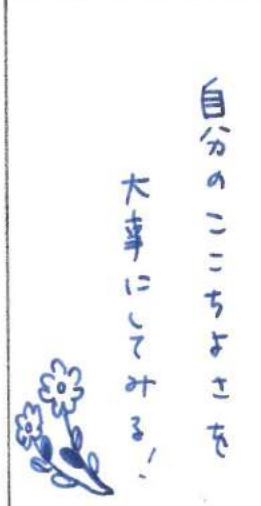 自分のここちよさを
大事にしてみる!